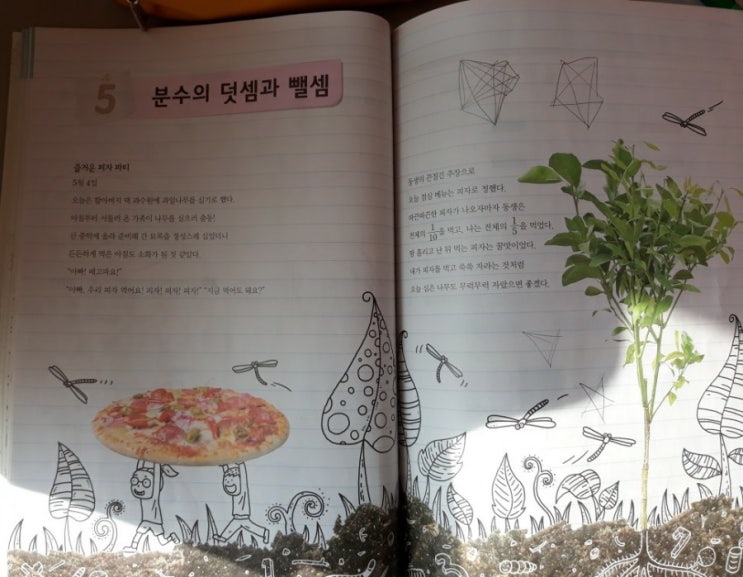 5 분수의 덧셈과 뺄셈
즐거운 피자 파티
5월 4일
오늘은 할아버지 댁 과수원에 과일나무를 심기로 했다.
아침부터 서둘러 온 가족이 나무를 심으러 출동!
산 중턱에 올라 준비해 간 묘목을 정성스레 심었더니
든든하게 먹은 아침도 소화가 된 것 같았다.
"아빠! 배고파요!"
"아빠, 우리 피자 먹어요! 피자! 피자! 피자!" "지금 먹어도 돼요?"
동생의 끈질긴 주장으로
오늘 점심 메뉴는 피자로 정했다.
따끈따끈한 피자가 나오자마자 동생은
전체의 1/10을 먹고, 나는 전체의 1/5을 먹었다.
땀 흘리고 난 뒤 먹는 피자는 꿀맛이었다.
내가 피자를 먹고 쑥쑥 자라는 것처럼
오늘 심은 나무도 무럭무럭 자랐으면 좋겠다.